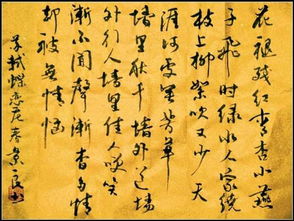 花褪残红青杏小燕
子飞时绿水人家绕
枝上柳绵吹又少天
涯何处無芳草
墙里秋千墙外道墙
外行人墙里佳人笑笑
渐不闻聲渐杳多情
却被無情恼
苏轼蝶恋花春景